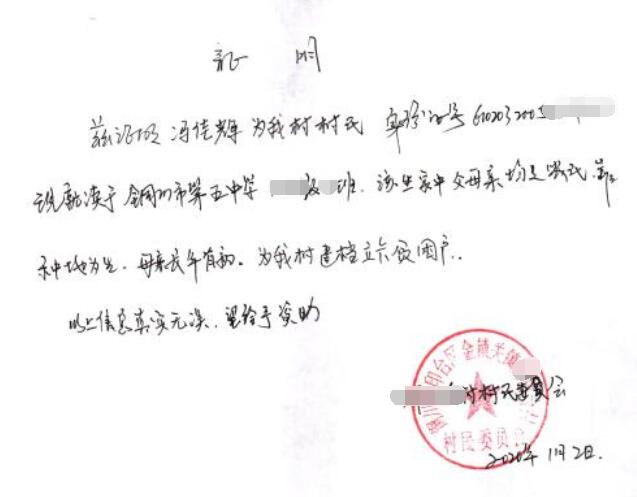 证 明
兹证明 冯佳辉 为我村村民 身份证号 6102032005
现就读于铜川市第五中学 级 班，该生家中父母亲均是农民，靠
种地为生，母亲长年有病。为我村建档立卡贫困户。
以上信息真实无误，望给予资助
村村民委员会
印台区金锁关镇
村民委员会
2020年11月2日